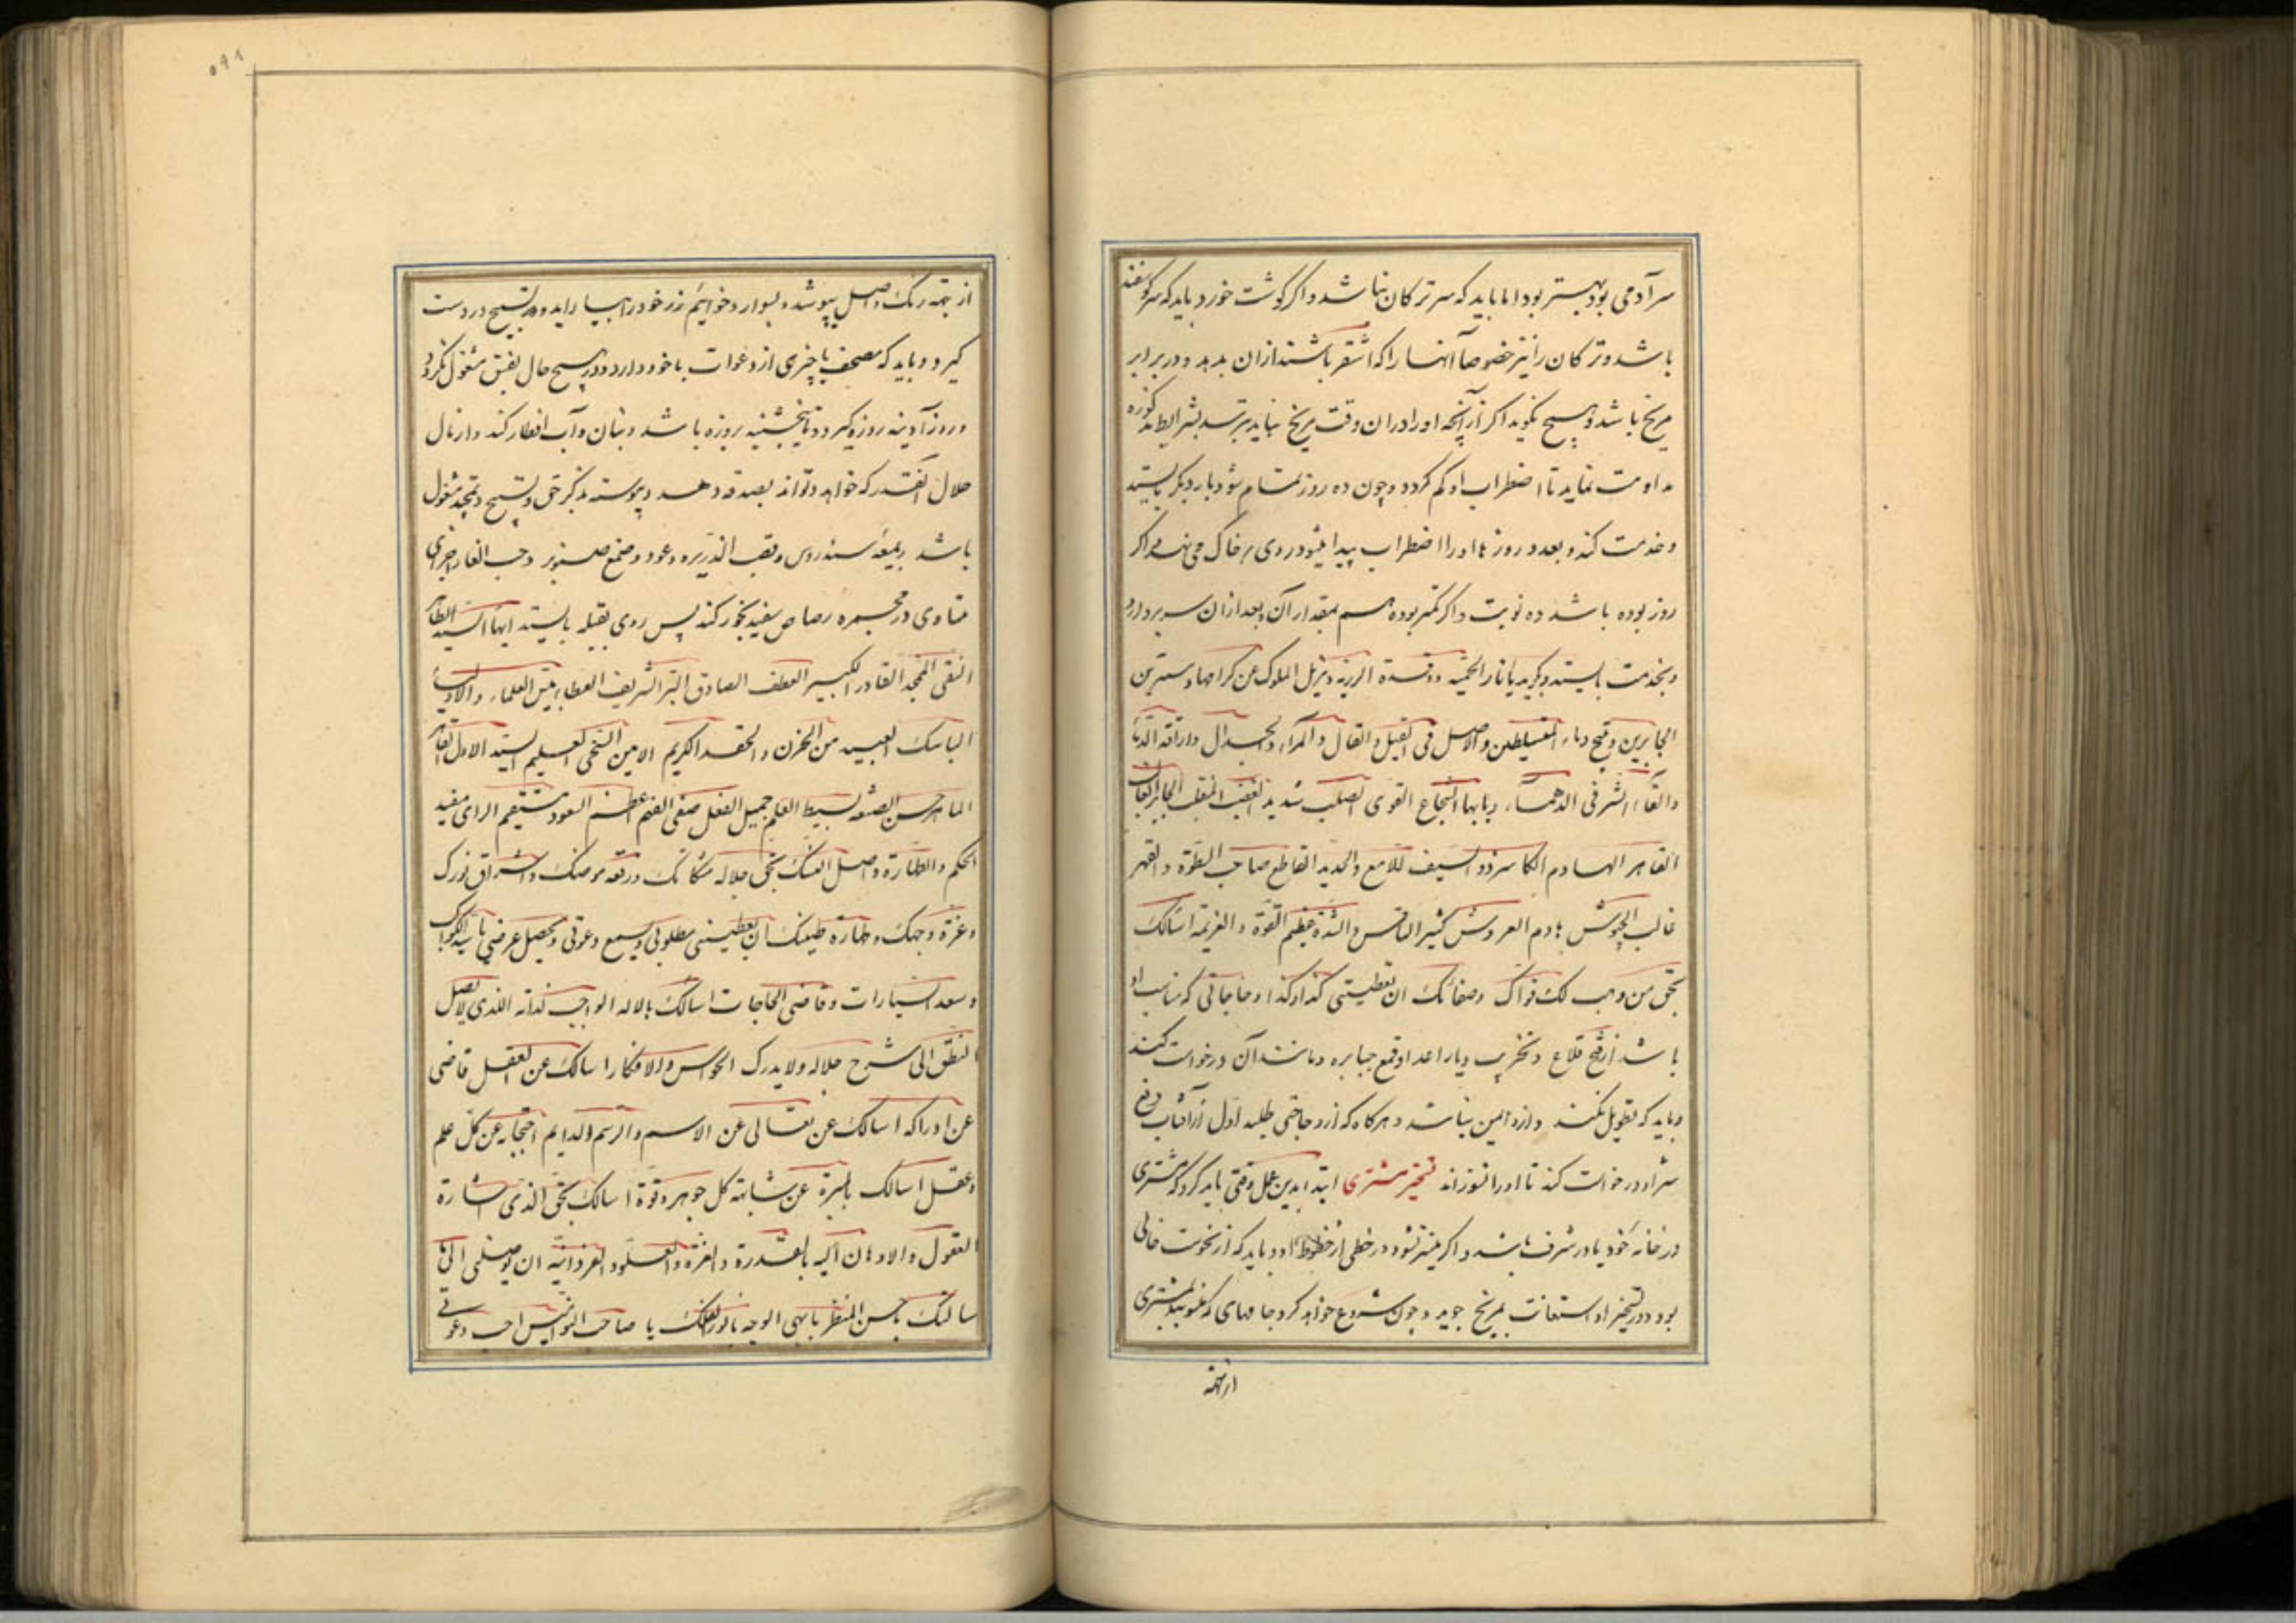 سر آدمی بود بهتر بود اما باید که سر ترکان نباشد و اکر کوشت خورد باید که سر کوسفند
باشد و ترکان را نیز خصوصاً آنها را که اشقر باشند ازان بدهد و در برابر
مریخ باشد و هیچ نکوید اکر ازآنچه او را دران وقت مریخ نباید بترسد بشرایط مذکوره
مداومت نماید تا اضطراب او کم کردد و چون ده روز تمام شود بار دیکر بایستد
و خدمت کند و بعد دو روزها او را اضطراب پیدا میشود روی بر خاک می نهد اکر
روز بوده باشد ده نوبت و اکر کمتر بوده هم بمقدار آن و بعد ازان سر بردارد
و بخدمت بایستد و بکوید یا نار الحمیة و وقدة الرزیة و مزیل الملوک عن کراسیها و
الجابرین و مهیج دماء المتسلطین والاصل فی القیل والقال والمرآء والجدال واراقة الدمآء
والقآء الشر فی الدهمآء و یا ایها الشجاع القوی الصلب شدید الغضب الملتهب الجابر
القاهر الهادم الکاسر ذو السیف اللامع والحدید القاطع صاحب السطوة والقهر
غالب الجیوش هادم العروش کثیر الباس والشدة عظیم القوة والعزیمة اسالک
بحق من وهب لک قواک وصفاتک ان تعطینی کذا و کذا و حاجاتی که مناسب او
باشد از فتح قلاع و تخریب دیار اعدا و قمع جبابره و مانند آن درخواست کند
و باید که تطویل نکند و ازو ایمن نباشد و هر کاه که ازو حاجتی طلبد اول از آفتاب دفع
شر او درخواست کند تا او را نسوزاند تسخیر مشتری ابتدا بدین عمل وقتی باید کرد که مشتری
در خانهٔ خود یا در شرف باشد و اکر میسر نشود در حظی از حظوظ او و باید که از نحوست خالی
بود و در تسخیر او استعانت بمریخ جوید و چون شروع خواهد کرد جامهای که منسوبند بمشتری
از جمه
از جمه رنک و اصل بپوشد و بسوار و خواتیم زر خود را بیاراید و تسبیح در دست
کیرد و باید که مصحف یا چیزی از دعوات با خود دارد و در هیچ حال بفسق مشغول نکردد
و روز آدینه روزه کیرد و تا پنجشنبه بروزه باشد و بنان و آب افطار کند و از مال
حلال آنقدر که خواهد و تواند بصدقه دهد و پیوسته بذکر حق و تسبیح و تمجید مشغول
باشد و میعه سندروس و قصب الذریره و عود و صمغ صنوبر و حب الغار اجزای
متساوی در مجمره رصاص سفید بخور کند پس روی بقبله بایستد ایها السید الطاهر
النقی الممجد القادر الکبیر العطف الصادق البر الشریف العطاء رئیس العلماء والادبآء
الناسک البعید من الحزن والحقد الکریم الامین السخی العلیم السید الاول الطاهر
الماهر حسن الصنعه بسیط العلم جمیل الفعل صفی الفهم اعظم السعود مستقیم الرای مفید
الحکم والطهارة واصل النسک بحق جلاله مکانک ورفعه موضعک واشراق نورک
وعزة وجهک وطهارة طبعک ان تعطینی مطلوبی وتسمع دعوتی وتحصل غرضی یا سید الکواکب
وسعد السیارات وقاضی الحاجات اسالک بالاله الواجب لذاته الذی لا یصل
النطق الی شرح جلاله ولا یدرک الحواس والافکار اسالک عن العقل قاضی
عن ادراکه اسالک عن تعالی عن الاسم والرسم والدایم احتجابه عن کل علم
وعقل اسالک بالمنزه عن مشابهة کل جوهر وقوة اسالک بحق الذی اشارة
العقول والاذهان الیه بالقدرة والعزة والعلو والفردانیه ان توصلنی الی ما
سالتک یا حسن المنظر یا بهی الوجه یا نور الفلک یا صاحب النوامیس اجب دعوتی